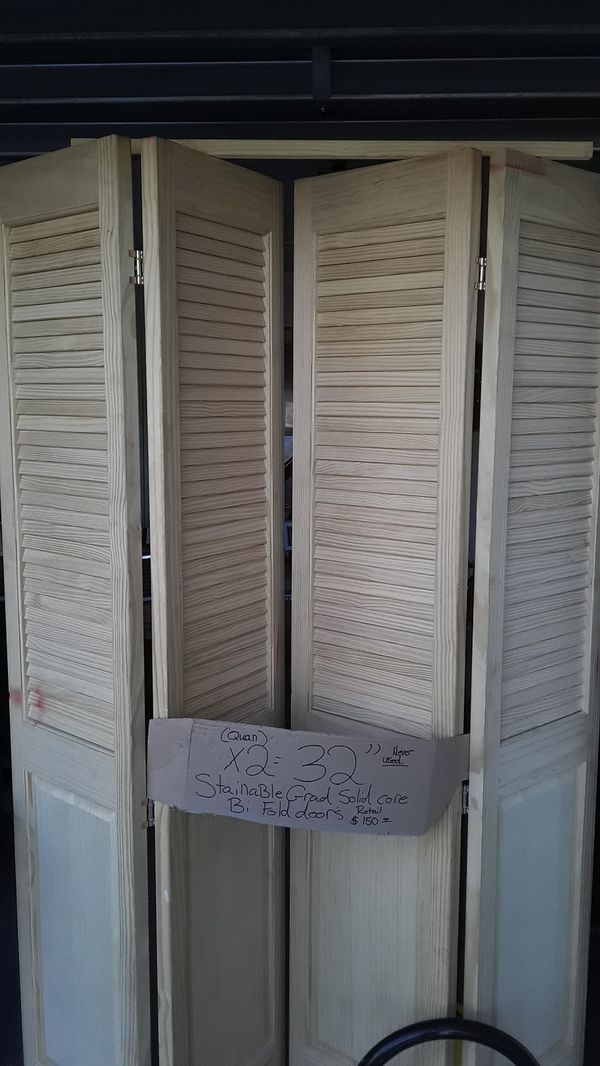 (Quan)
x2 = 32 '' Never used
StainaBle Grad Solid core
Bi Fold door's Retail
$150 =